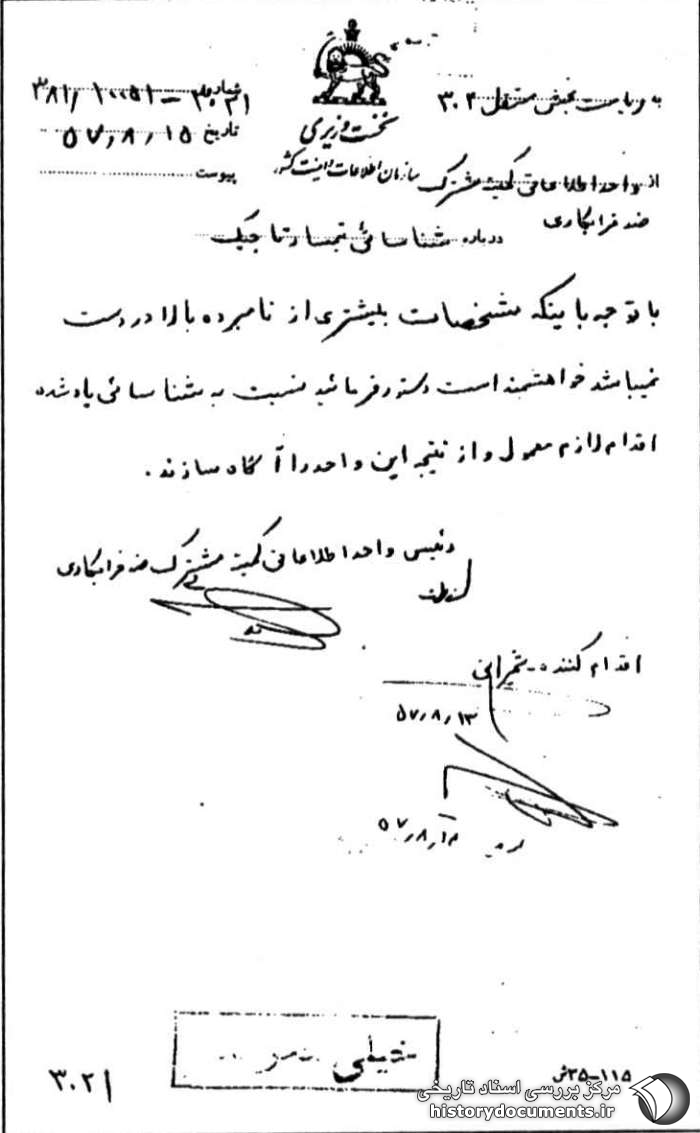 به ریاست بخش مستقل ۳۰۲
نخست وزیری
سازمان اطلاعات و امنیت کشور
شماره ۳۰۲۱ – ۱۰۰۵۱/۳۸۱
تاریخ ۵۷،۸،۱۵
پیوست
از واحد اطلاعاتی کمیته مشترک
ضد خرابکاری
درباره شناسائی تیمسار تاجیک
با توجه باینکه مشخصات بیشتری از نامبرده بالا در دست
نمیباشد خواهشمند است دستور فرمائید نسبت به شناسائی یاد شده
اقدام لازم معمول و از نتیجه این واحد را آگاه سازند.
رئیس واحد اطلاعاتی کمیته مشترک ضد خرابکاری
اقدام کننده –
۵۷،۸،۱۳
۵۷،۸،
خیلی
۳۰۲۱
۱۱۵–۲۵ش
مرکز بررسی اسناد تاریخی
historydocuments.ir